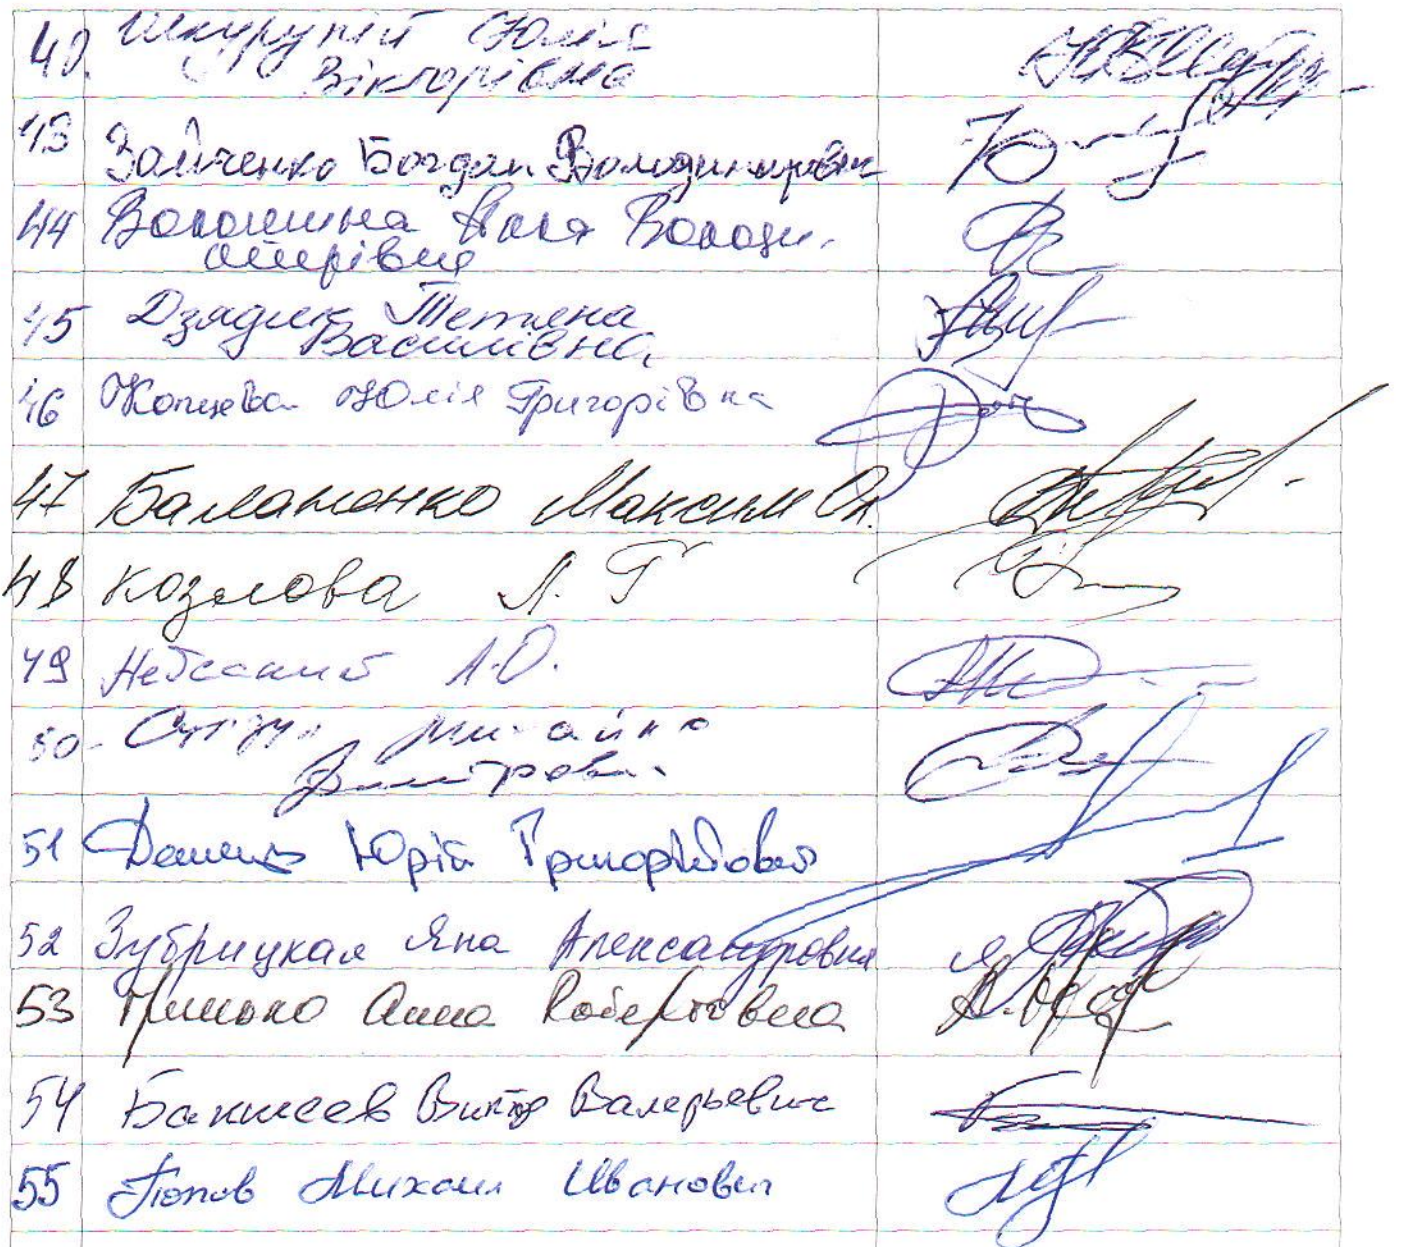 40. Шкурупій Юлія
Вікторівна
43 Зайченко Богдан Володимирович
44 Волошина Володи-
мирівна
45 Дзядик Тетяна
Василівна
46 Копцева Юлія Григорівна
47 Баламенко Максим
48 Козлова Л. Г
49 А.О.
50. Михайло
Дмитрович
51 Юрій Григорійович
52 Зубрицкая Яна Александровна
53 Гринько Анна Робертовна
54 Бакшеев Виктор Валерьевич
55 Попов Михаил Иванович